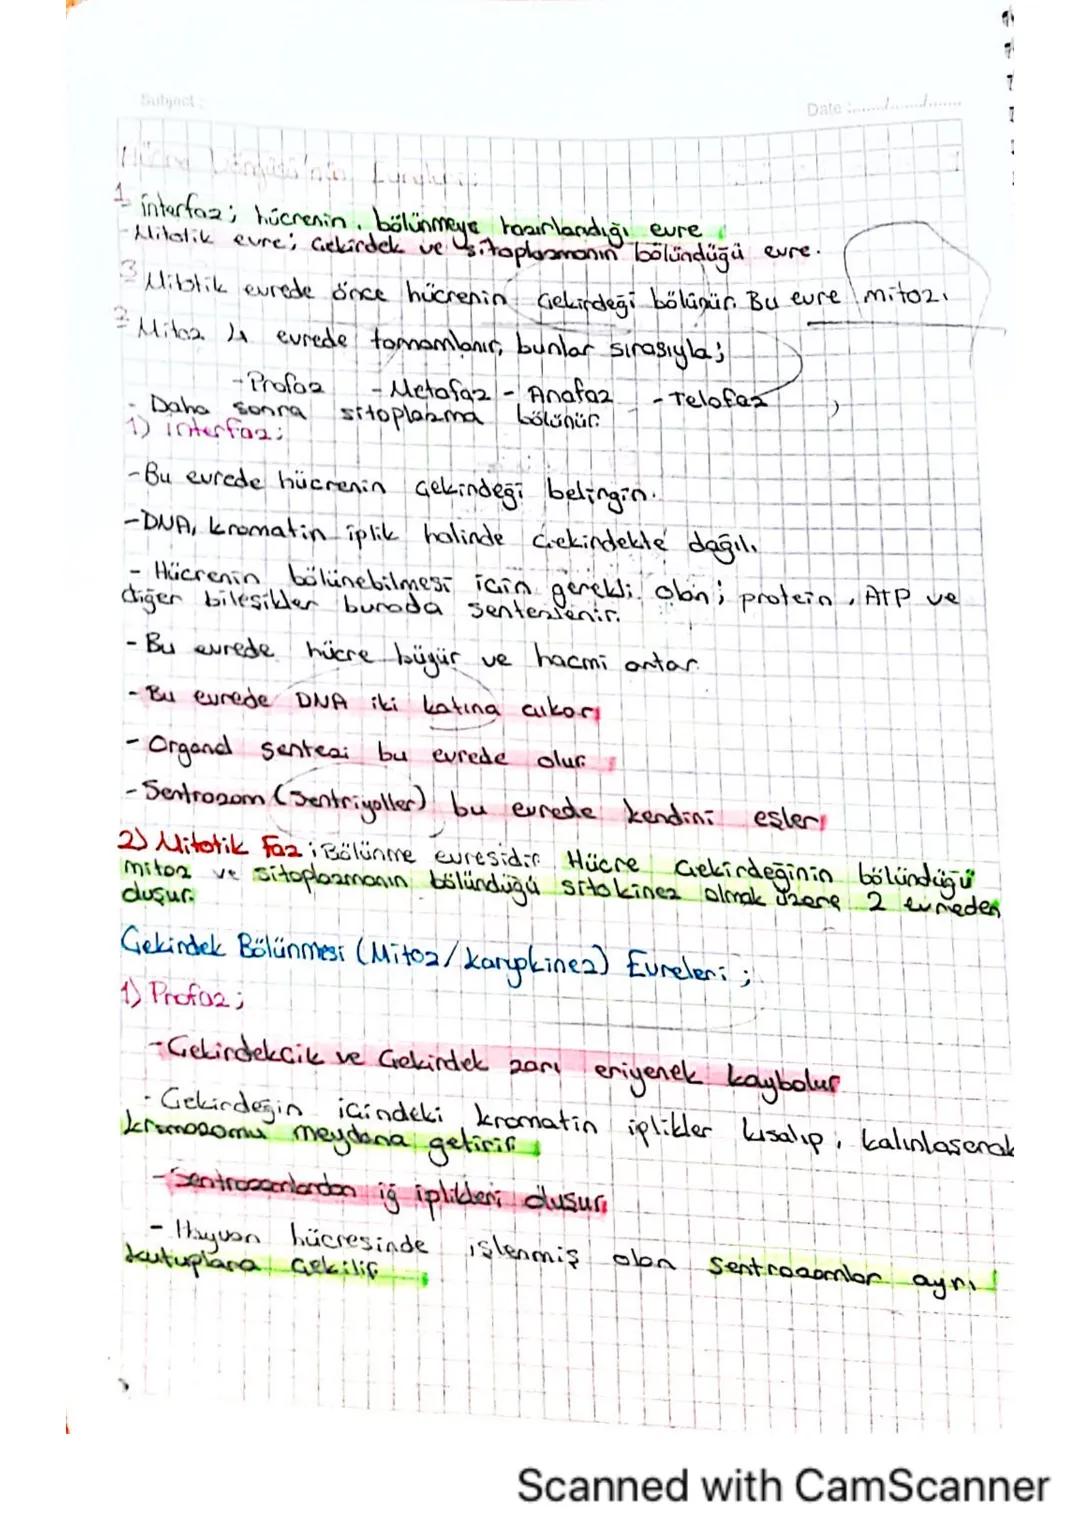 Subject :
Date : ......./......./.......
Hücre Döngüsü'nün Evreleri:
1- İnterfaz; hücrenin, bölünmeye hazırlandığı evre
- Mitotik evre; Çekirdek ve sitoplazmanın bölündüğü evre.
3 Mitotik evrede önce hücrenin Çekirdeği bölünür. Bu evre mitoz.
2 Mitoz 4 evrede tamamlanır, bunlar sırasıyla;
- Profaz - Metafaz - Anafaz - Telofaz
- Daha sonra sitoplazma bölünür.
1) İnterfaz;
- Bu evrede hücrenin Çekirdeği belirgin.
- DNA, kromatin iplik halinde Çekirdekte dağılı.
- Hücrenin bölünebilmesi için gerekli olan; protein, ATP ve
diğer bileşikler burada sentezlenir.
- Bu evrede hücre büyür ve hacmi artar.
- Bu evrede DNA iki katına çıkar.
- Organel sentezi bu evrede olur.
- Sentrozom (Sentriyoller) bu evrede kendini eşler.
2) Mitotik Faz; Bölünme evresidir. Hücre Çekirdeğinin bölündüğü
mitoz ve sitoplazmanın bölündüğü sitokinez olmak üzere 2 evreden
oluşur.
Çekirdek Bölünmesi (Mitoz/Karyokinez) Evreleri;
1) Profaz;
- Çekirdekçik ve Çekirdek zarı eriyerek kaybolur
- Çekirdeğin içindeki kromatin iplikler kısalıp, kalınlaşarak
kromozomu meydana getirir
- Sentrozomlardan iğ iplikleri oluşur.
- Hayvan hücresinde işlenmiş olan Sentrozomlar ayrı
kutuplara Çekilir
Scanned with CamScanner